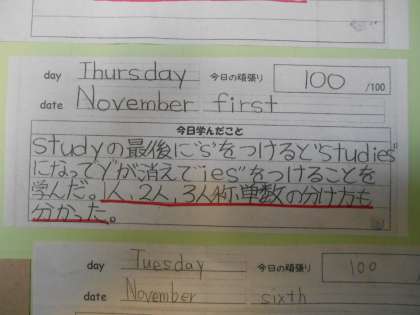 day Thursday 今日の頑張り 100 /100
date November first
今日学んだこと
studyの最後に"s"をつけると"studies"
になって"y"が消えて"ies"をつけることを
学んだ。1人、2人、3人称、単数の分け方も
分かった。
day Tuesday 今日の頑張り 100
date November sixth